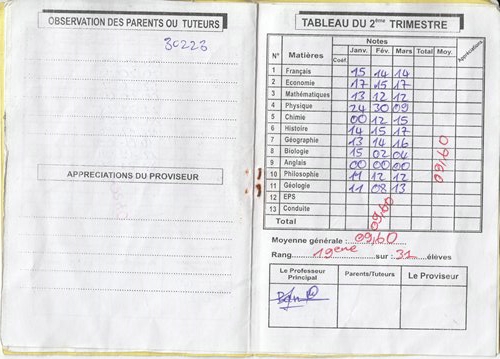 OBSERVATION DES PARENTS OU TUTEURS
30223
APPRECIATIONS DU PROVISEUR
TABLEAU DU 2ème TRIMESTRE
N° Matières Coef. Notes Janv. Fév. Mars Total Moy. Appréciations
1 Français 15 14 14
2 Economie 17 15 17
3 Mathématiques 13 12 12
4 Physique 24 30 09
5 Chimie 00 12 15
6 Histoire 14 15 17
7 Géographie 13 14 16
8 Biologie 15 02 04
9 Anglais 00 00 00
10 Philosophie 11 12 12
11 Géologie 11 08 13
12 EPS
13 Conduite
Total
09,60
09,60
Moyenne générale : 09,60
Rang 19ème sur : 31 élèves
Le Professeur Principal
Parents/Tuteurs
Le Proviseur